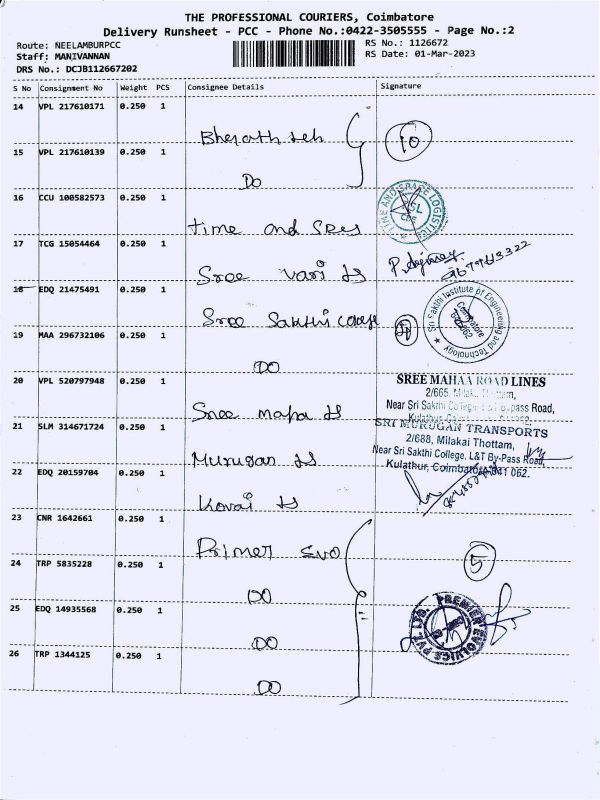 THE PROFESSIONAL COURIERS, Coimbatore
Delivery Runsheet - PCC - Phone No.:0422-3505555 - Page No.:2
Route: NEELAMBURPCC
RS No.: 1126672
Staff: MANIVANNAN
RS Date: 01-Mar-2023
DRS No.: DCJB112667202
S No Consignment No Weight PCS Consignee Details Signature
14 VPL 217610171 0.250 1
10
15 VPL 217610139 0.250 1
DO
16 CCU 100582573 0.250 1
time and
TIME AND SPACE LOGISTICS
17 TCG 15054464 0.250 1
Sree vari
18 EDQ 21475491 0.250 1
Sree Sakthi College
Sri Sakthi Institute of Engineering and Technology
Coimbatore
19 MAA 296732106 0.250 1
DO
20 VPL 520797948 0.250 1
Sree maha
SREE MAHAA ROAD LINES
2/665,
Near Sri Sakthi College L&T Bypass Road,
21 SLM 314671724 0.250 1
Murugan
SRI MURUGAN TRANSPORTS
2/688, Milakai Thottam,
Near Sri Sakthi College, L&T By-Pass Road,
Kulathur, Coimbatore-641 062.
22 EDQ 20159704 0.250 1
Kovai
23 CNR 1642661 0.250 1
Primer Evo
5
24 TRP 5835228 0.250 1
DO
25 EDQ 14935568 0.250 1
DO
PREMIER EVOLVICS PVT. LTD.
26 TRP 1344125 0.250 1
DO